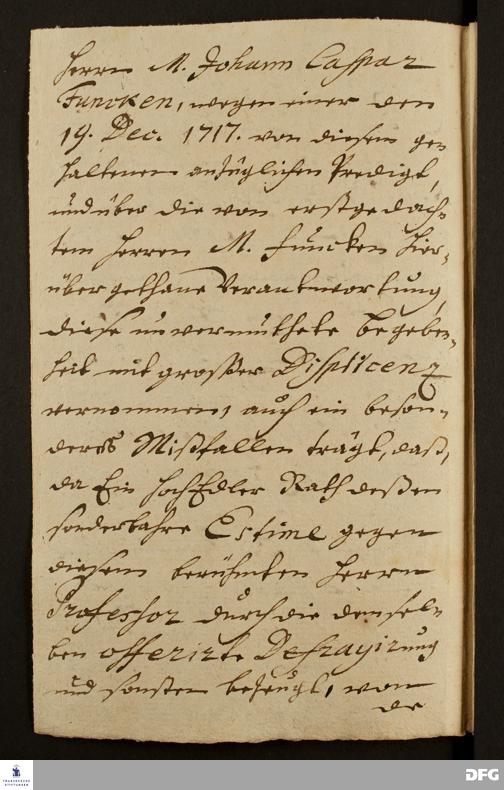 Herrn M. Johann Caspar
Funcken, wegen einer den
19. Dec. 1717. von diesem ge-
haltenen anzüglichen Predigt,
und über die von erstgedach-
tem Herren M. Funcken hier-
über gethane Verantwortung,
diese unvermuthete Begeben-
heit mit großer Displicenz
vernommen, auch ein beson-
ders Mißfallen trägt, daß,
da Ein HochEdler Rath deßen
sonderbahre Estime gegen
diesem berühmten Herrn
Professor durch die demsel-
ben offerirte Defrayirung
und sonsten bezeugt, von
de
FRANCKESCHE
STIFTUNGEN
DFG